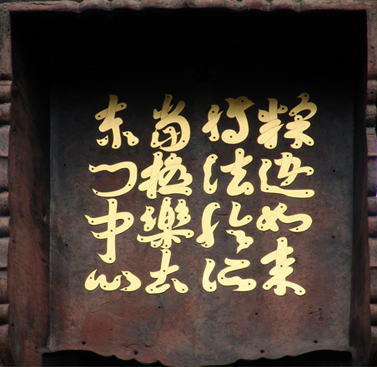 釋迦如来
轉法輪処
當極樂土
東門中心